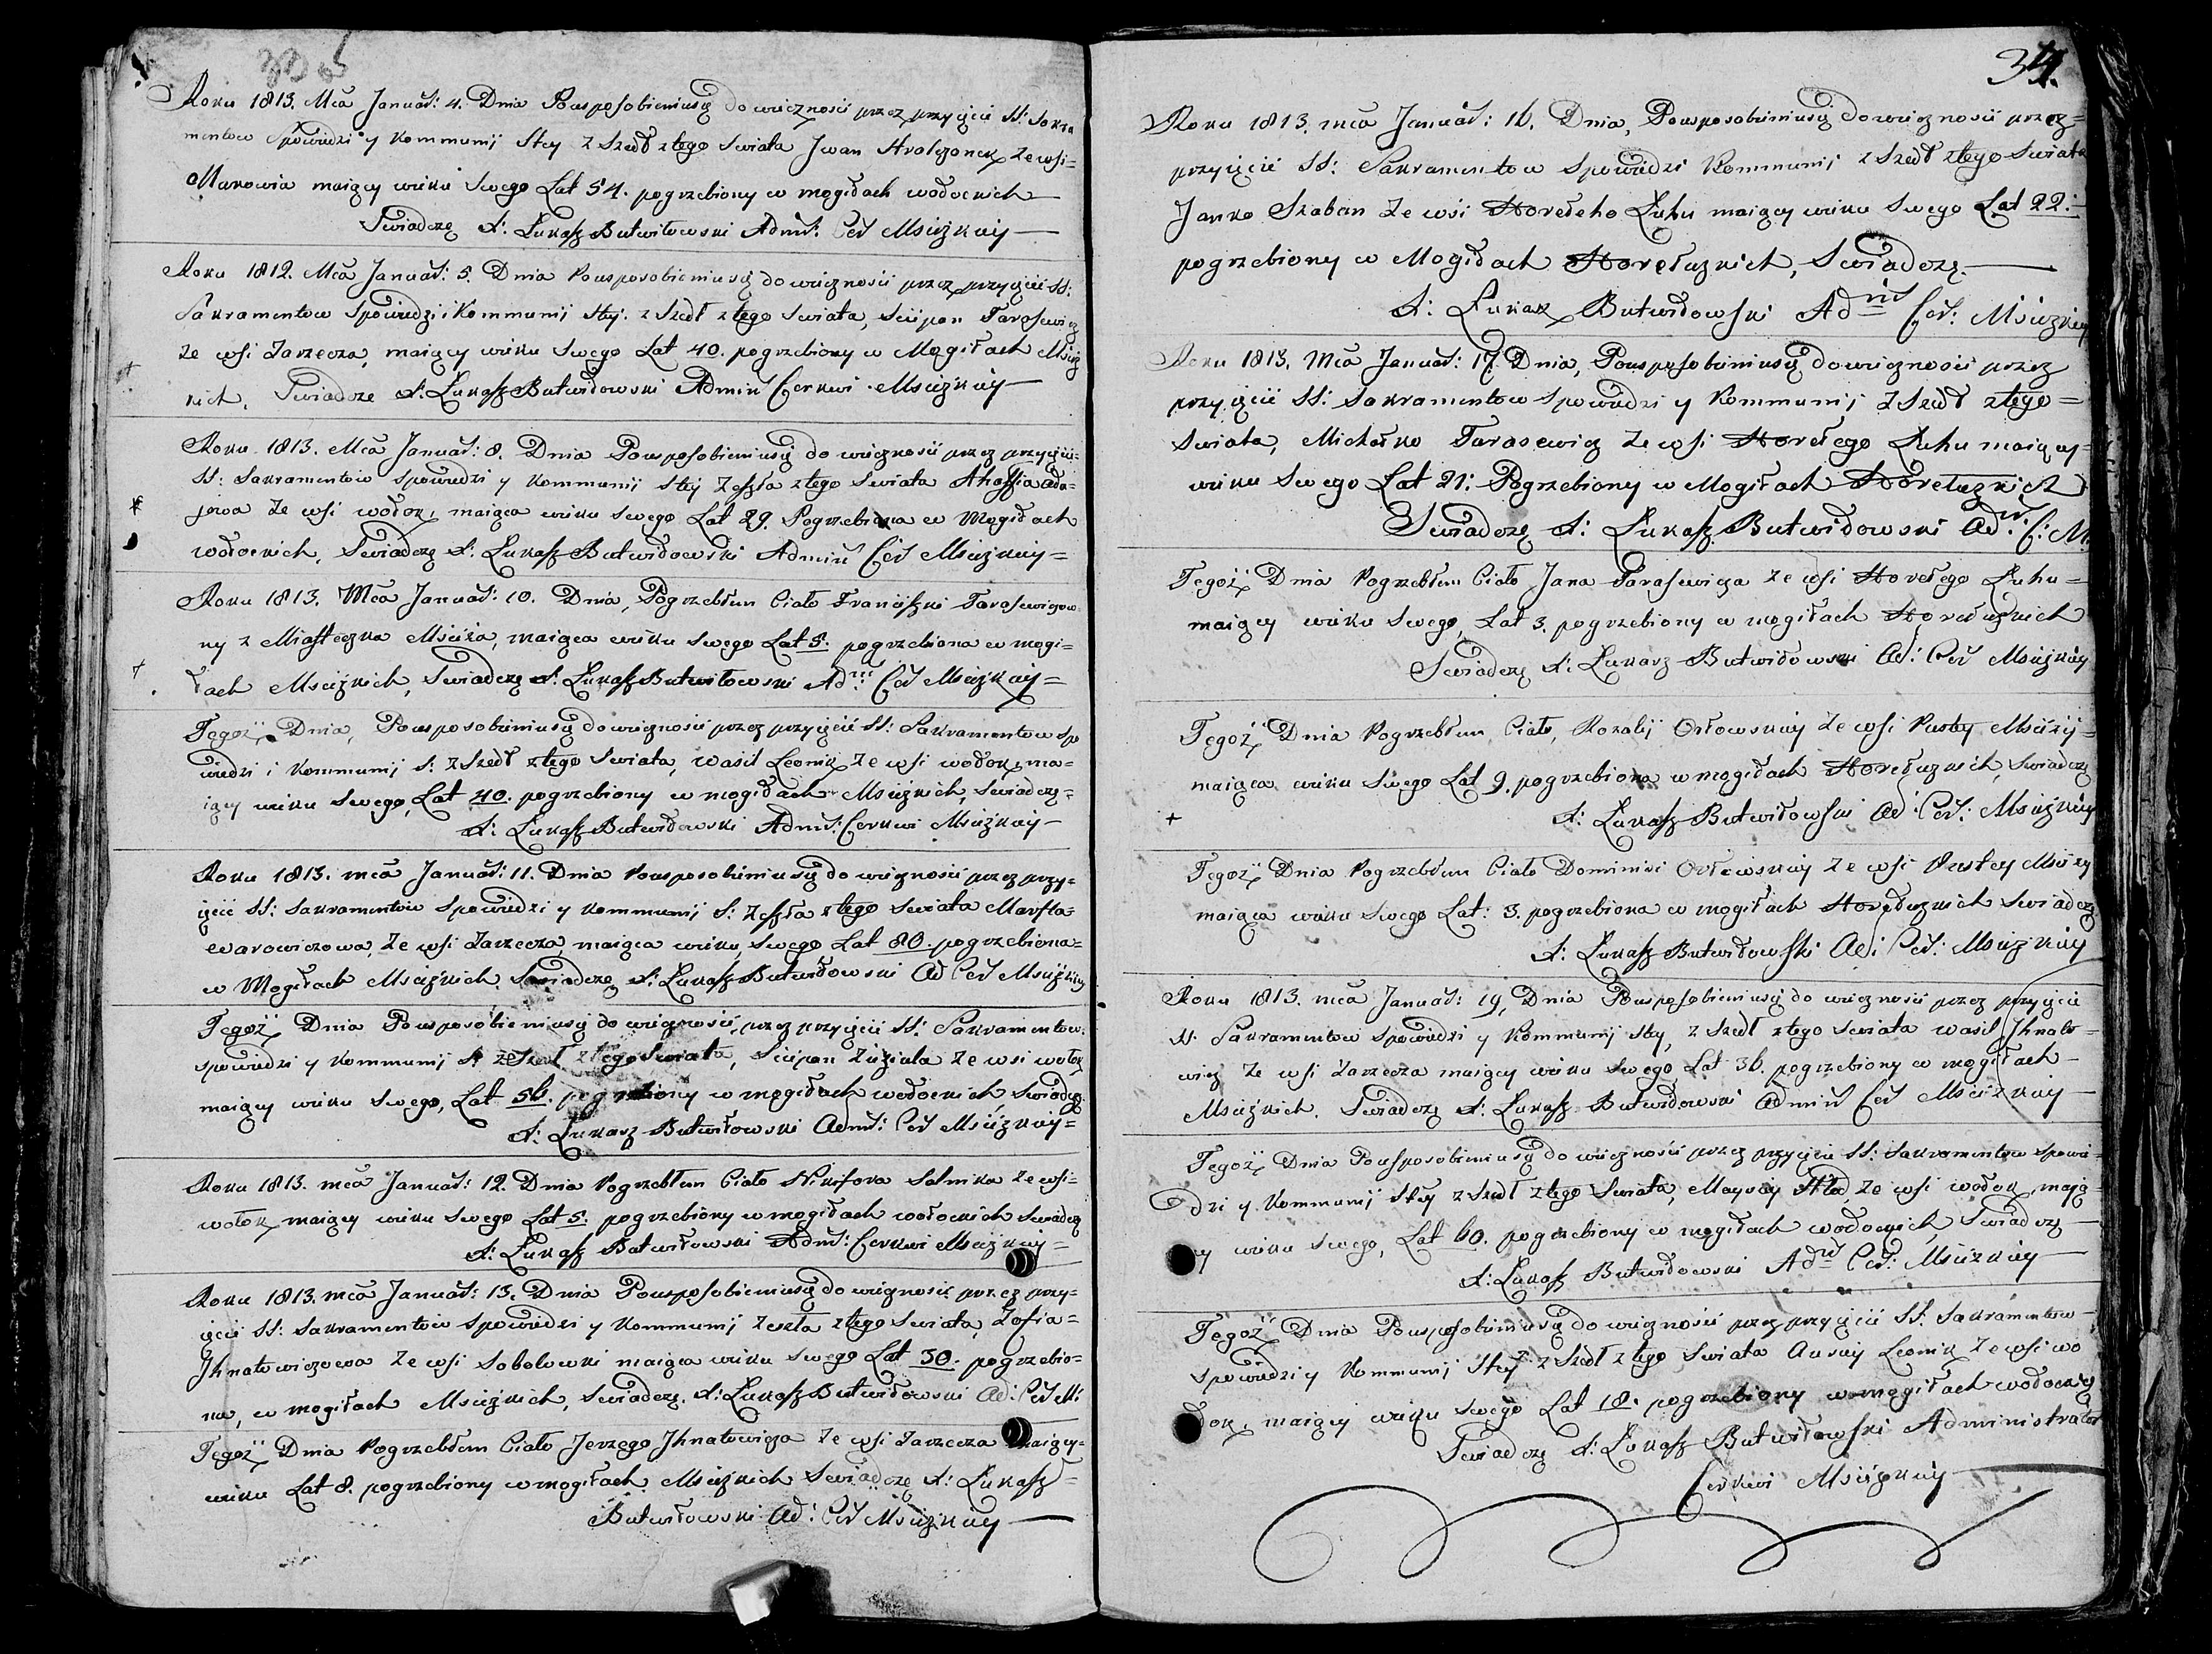 305
Roku 1813. Mca Januar: 4. Dnia Pousposobieniusię do wieczności przez przyięcie SS: Sakra
mentow Spowiedzi y Kommunij Stey z Szedł z tego Swiata Jwan Hrolczonek ze wsi=
Makowia maiący wieku Swego Lat 54. pogrzebiony w mogiłach wołockich
Swiadczę X: Łukasz Butwiłowski Admi: Cer Msciżkiey
Roku 1812. Mca Januar: 5. Dnia Pousposobieniusię do wieczności przez przyięcie SS:
Sakramentow Spowiedzi i Kommunij Stey. z Szedł z tego Swiata, Sciepan Tarasewicz
ze wsi Zarzecza, maiący wieku Swego Lat 40. pogrzebiony w Mogiłach Msciż
kich. Swiadcze X: Łukasz Butwidowski Admin Cerkwi Msciżkiey
Roku 1813. Mca Januar: 8. Dnia Pousposobieniusię do wieczności przez przyięcie=
SS: Sakramentow Spowiedzi y Kommunij Stey Zeszła z tego Swiata Ahaffia Ada=
jowa ze wsi wołok, maiąca wieku Swego Lat 29. Pogrzebiona w Mogiłach
wołockich, Swiadczę X: Łukasz Butwidowski Admin Cer Msciżkiey=
Roku 1813. Mca Januar: 10. Dnia, Pogrzebłem Ciało Franciszki Tarasewiczow
ny z Miasteczka Mściża, maiąca wieku Swego Lat 8. pogrzebiona w mogi=
łach Msciżkich, Swiadczę X: Łukasz Butwiłowski Adm Cer Msciżkiey=
Tegoż Dnia, Pousposobieniusię do wieczności przez przyięcie SS: Sakramentow Spo
wiedzi i Kommunij S: z Szedł z tego Swiata, Wasil Leonik ze wsi wołok, ma=
iący wieku Swego, Lat 40. pogrzebiony w mogiłach Msciżkich, Swiadczę=
X: Łukasz Butwidowski Admi: Cerkwi Msciżkiey
Roku 1813. mca Januar: 11. Dnia Pousposobieniusię do wieczności przez przy=
ięcie SS: Sakramentow Spowiedzi y Kommunij S: Zeszła z tego Swiata Marfla
Warowiczowa, ze wsi Zarzecza, maiąca wieku, Swego Lat 80. pogrzebiona=
w Mogiłach Msciżkich, Swiadczę X: Łukasz Butwidowski Ad Cer Msciżkiey
Tegoż Dnia Pousposobieniusię do wieczności, przez przyięcie SS: Sakramentow.
Spowiedzi y Kommunij S: ze Szedł z tego Swiata, Sciepan Ziuziala ze wsi wołok
maiący wieku Swego, Lat 56. pogrzebiony w mogiłach wołockich Swiadczę
X: Łukasz Butwiłowski Admi: Cer Msciżkiey=
Roku 1813. mca Januar: 12. Dnia Pogrzebłem Ciało Nikifora Salnika ze wsi=
wołok, maiący wieku Swego Lat 5. pogrzebiony w mogiłach wołockich Swiadczę
X: Łukasz Butwiłowski Admi: Cerkwi Msciżkiey=
Roku 1813. mca Januar: 13. Dnia Pousposobieniusię do wieczności przez przy=
ięcie SS: Sakramentow Spowiedzi y Kommunij Zeszła z tego Swiata, Zofia=
Jhnatowiczowa ze wsi Sobolewki maiąca wieku Swego Lat 30. pogrzebio=
na, w mogiłach Msciżkich, Swiadczę. X: Łukasz Butwiłowski Ad: Cer M:
Tegoż Dnia Pogrzebłem Ciało Jerzego Jhnatowicza ze wsi Zarzecza maiący=
wieku Lat 8. pogrzebiony w mogiłach Msciżkich Swiadczę X: Łukasz
Butwiłowski Ad: Cer Msciżkiey
34.
Roku 1813. mca Januar: 16. Dnia, Pousposobieniusię do wieczności przez=
przyięcie SS: Sakramentow Spowiedzi Kommunij z Szedł z tego Swiata
Janko Szaban ze wśi Horełeho Łuhu maiący wieku Swego Lat 22:
pogrzebiony w Mogiłach Horełuzkich, Swiadczę.
X: Łukasz Butwidowski Adm Cer: Msciżkiey
Roku 1813. Mca Januar: 17. Dnia, Pousposobieniusię do wieczności przez
przyięcie SS: Sakramentow Spowiedzi y Kommunij z Szedł z tego=
Swiata, Michałko Tarasewicz ze wsi Horełego Łuhu maiący=
wieku Swego Lat 21: Pogrzebiony w Mogiłach Horełuzkich
Swiadczę X: Łukasz Butwidowski Ad: C: M:
Tegoż Dnia Pogrzebłem Ciało Jana Tarasewicza ze wsi Horełego Łuhu=
maiący wieku Swego, Lat 3. pogrzebiony w mogiłach Horełuzkich
Swiadczę X: Łukasz Butwidowski Ad: Cer Msciżkiey
Tegoż Dnia Pogrzebłem Ciało, Rozalij Orłowskiey ze wsi Pustey Msciży=
maiąca wieku Swego Lat 9. pogrzebiona w mogiłach Horełuzkich, Swiadczę
X: Łukasz Butwiłowski Ad: Cer: Msciżkiey
Tegoż Dnia Pogrzebłem Ciało Dominiki Orłowskiey ze wsi Pustey Msciży
maiąca wieku Swego Lat: 3. pogrzebiona w mogiłach Horełuzkich Swiadczę
X: Łukasz Butwidowski Ad: Cer: Msciżkiey
Roku 1813. mca Januar: 19, Dnia Pousposobieniusię do wieczności przez przyięcie
SS. Sakramentow Spowiedzi y Kommunij Stey, z Szedł z tego Swiata Wasil Jhnato=
wicz ze wsi Zarzecza maiący wieku Swego Lat 36. pogrzebiony w mogiłach
Msciżkich. Swiadczę X: Łukasz Butwidowski Admin Cer Msciżkiey
Tegoż Dnia Pousposobieniusię do wieczności przez przyięcie SS: Sakramentow Spowie=
dzi y Kommunij Stey z Szedł z tego Swiata, Maysey Hład, ze wsi wołok, maią=
cy wieku Swego, Lat 60. pogrzebiony w mogiłach wołockich, Swiadczę
X: Łukasz Butwidowski Adm Cer: Msciżkiey
Tegoż Dnia Pousposobieniusię do wieczności przez przyięcie SS. Sakramentow
Spowiedzi y Kommunij Stey z Szedł z tego Swiata Auxiey Leonik ze wsi wo
łok, maiący wieku Swego Lat 18. pogrzebiony w mogiłach wołockich
Swiadczę X: Łukasz Butwiłowski Administrator
Cerkwi Msciżkiey